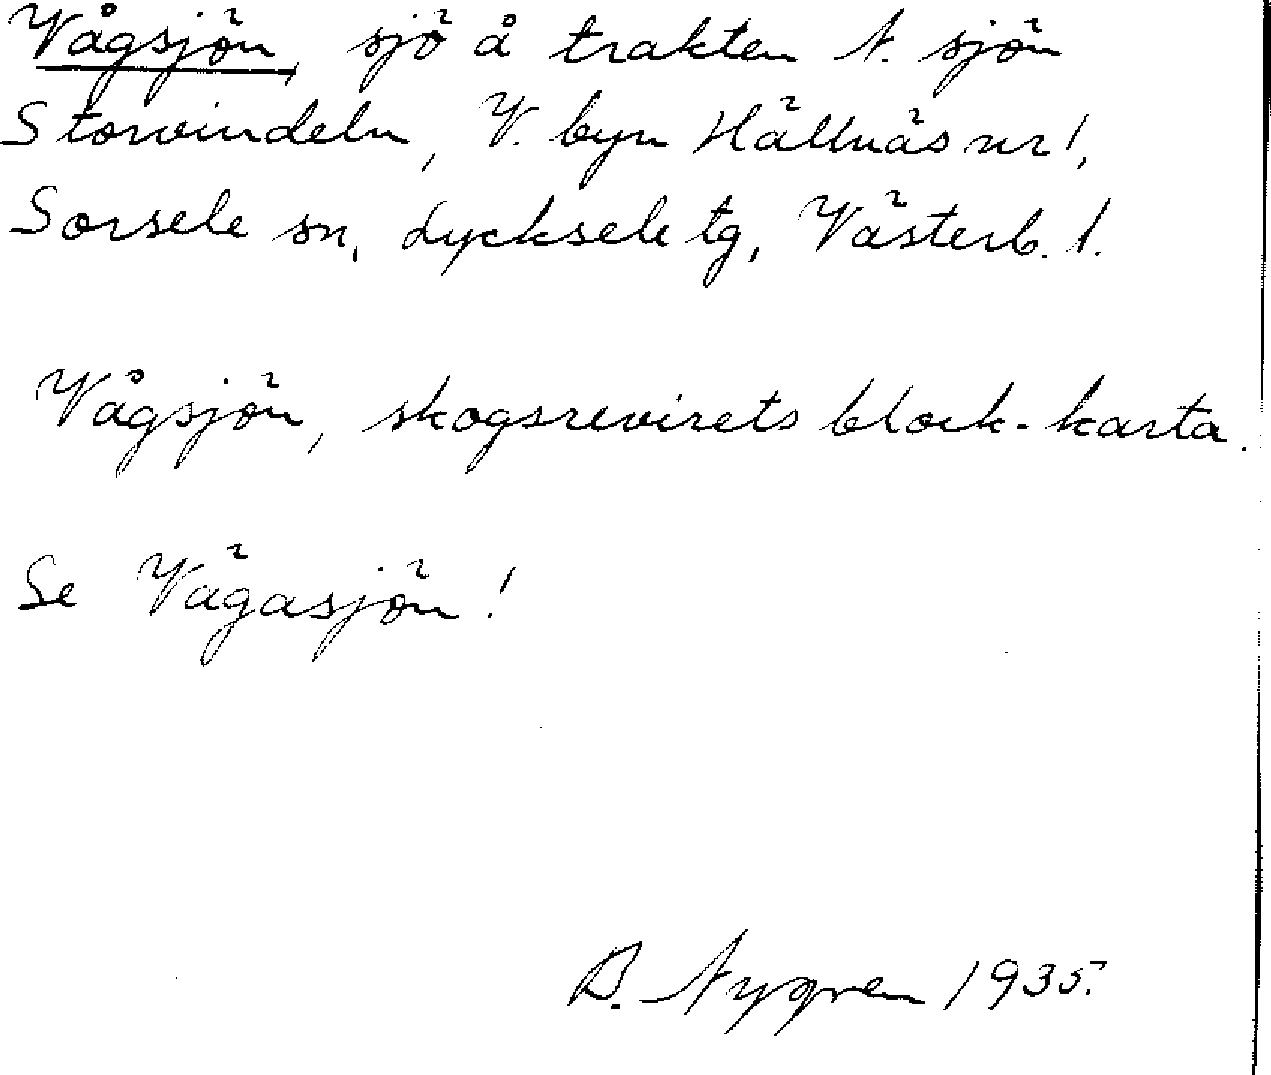 Vågsjön, sjö å trakten N. sjön
Storvindeln, V. byn Hällnäs nr 1,
Sorsele sn, Lycksele tg, Västerb. l.
Vågsjön, skogsrevirets block-karta.
Se Vägasjön!
B. Nygren 1935.